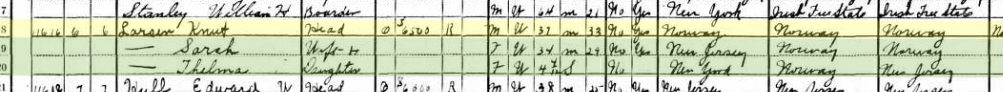 7 Stanley William H Boarder M W 64 m 21 No Yes New York Irish Free State Irish Free State
8 1616 6 6 Larsen Knut Head O 6500 R M W 37 m 33 No Yes Norway Norway Norway No
9 — Sarah Wife H F W 34 m 29 No Yes New Jersey Norway Norway
20 — Thelma Daughter F W S No New Norway New Jersey
21 7 7 Edward W Head O 6000 R M W 38 m No Yes New Jersey New Jersey New Jersey